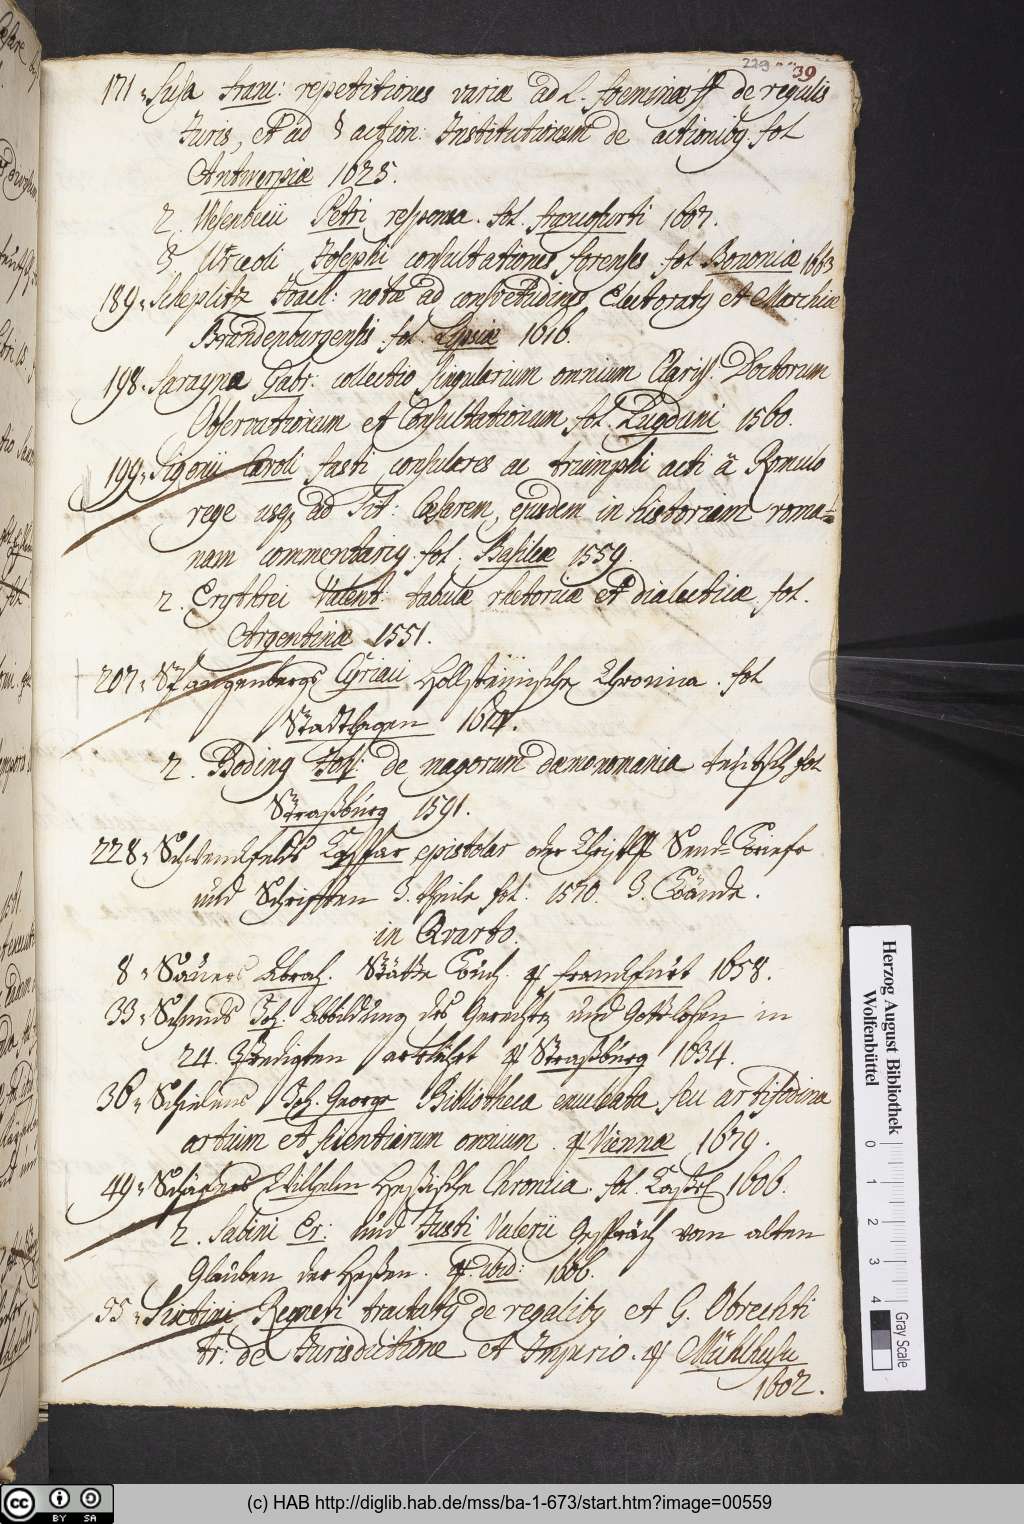 229 39
171. Susa Franc: repetitiones variæ ad L. foeminæ ff de regulis
Juris, et ad § action: Institutionum de actionibg fol
Antwerpiæ 1625.
2. Wesenbecii Petri responsa. fol. francofurti 1607.
3 Urceoli Josephi consultationes forenses fol Bononiæ 1663
189. Scheplitz Joach: notæ ad consvetudines Electoratg et Marchiæ
Brandenburgensis fol. Lipsiæ 1616.
198. Sarayna Gabr: collectio singularium omnium Clariss. Doctorum
Observationum et Consultationum fol. Lugdani 1560.
199. Sigonii Caroli fasti consulares ac triumphi acti à Romulo
rege usq ad Tit: Cæsarem, ejusdem in historiam roma-
nam commentarig. fol. Basileæ 1559.
2. Erythrei Valent: tabulæ rhetoricæ et dialecticæ fol.
Argentinæ 1551.
207. Spangenbergs Cyriaci Hollsteinische Chronica. fol
Stadthagen 1614.
2. Boding Joh: de magorum dæmonomania teutsch fol
Straßburg 1591.
228. Schwenckfelds Caspar epistolar oder Christl. Send-Briefe
und Schrifften 3. theile fol. 1570. 3. Bände.
in Qvarto.
8. Saurers Abrah. Stätte Buch. 4 franckfurt 1658.
33. Schmids Joh. Abbildung des Gerechten und Gottlosen in
24. Predigten erklährt 4 Straßburg 1634.
36. Schielens Joh. George Bibliotheca enucleata seu artifodina
artium et scientiarum omnium. 4 Viennæ 1679.
49. Schäfers Wilhelm Heßische Chronica. fol. Cassel 1606.
2. Sabini Er: und Justi Valerii Gespräch vom alten
Glauben der Heßen. 4. ibid: 1606.
55. Sixtini Regneri tractatg de regalibg et G. Obrechti
tr: de Jurisdictione et Imperio. 4 Mühlhusii
1602.
Herzog August Bibliothek
Wolfenbüttel
0 1 2 3 4
Gray Scale
(c) HAB http://diglib.hab.de/mss/ba-1-673/start.htm?image=00559
cc BY SA